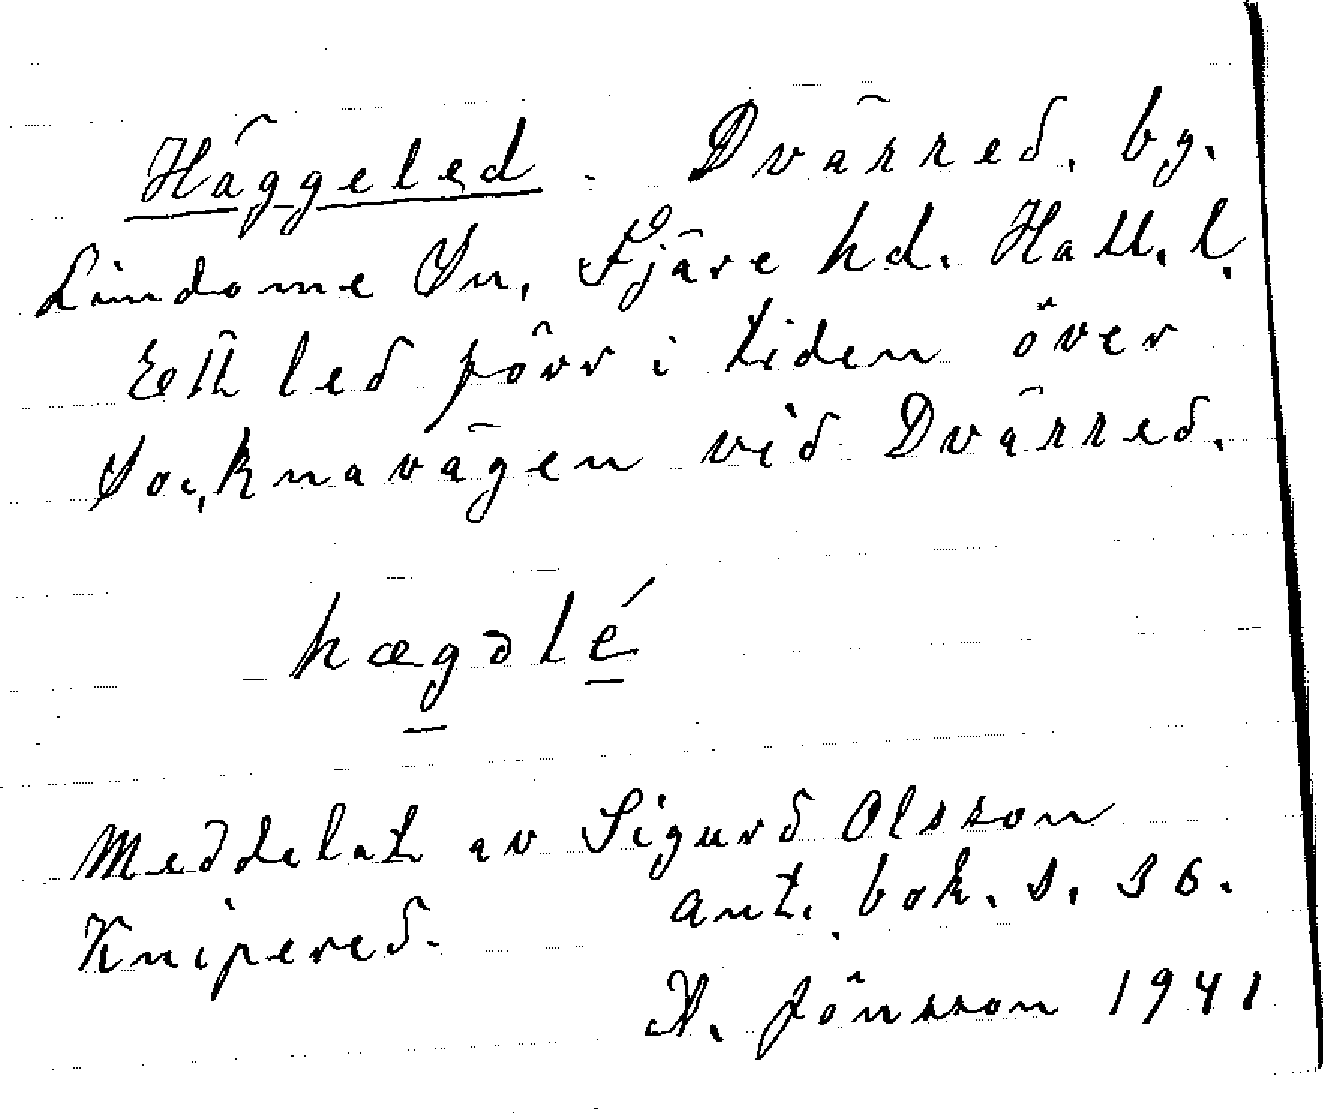 Häggeled. Dvärred. by.
Lindome Sn, Fjäre hd. Hall. l.
Ett led förr i tiden över
Socknavägen vid Dvärred.
hægəlé
Meddelat av Sigurd Olsson
Knipered. ant. bok. s. 36.
N. Jönsson 1941